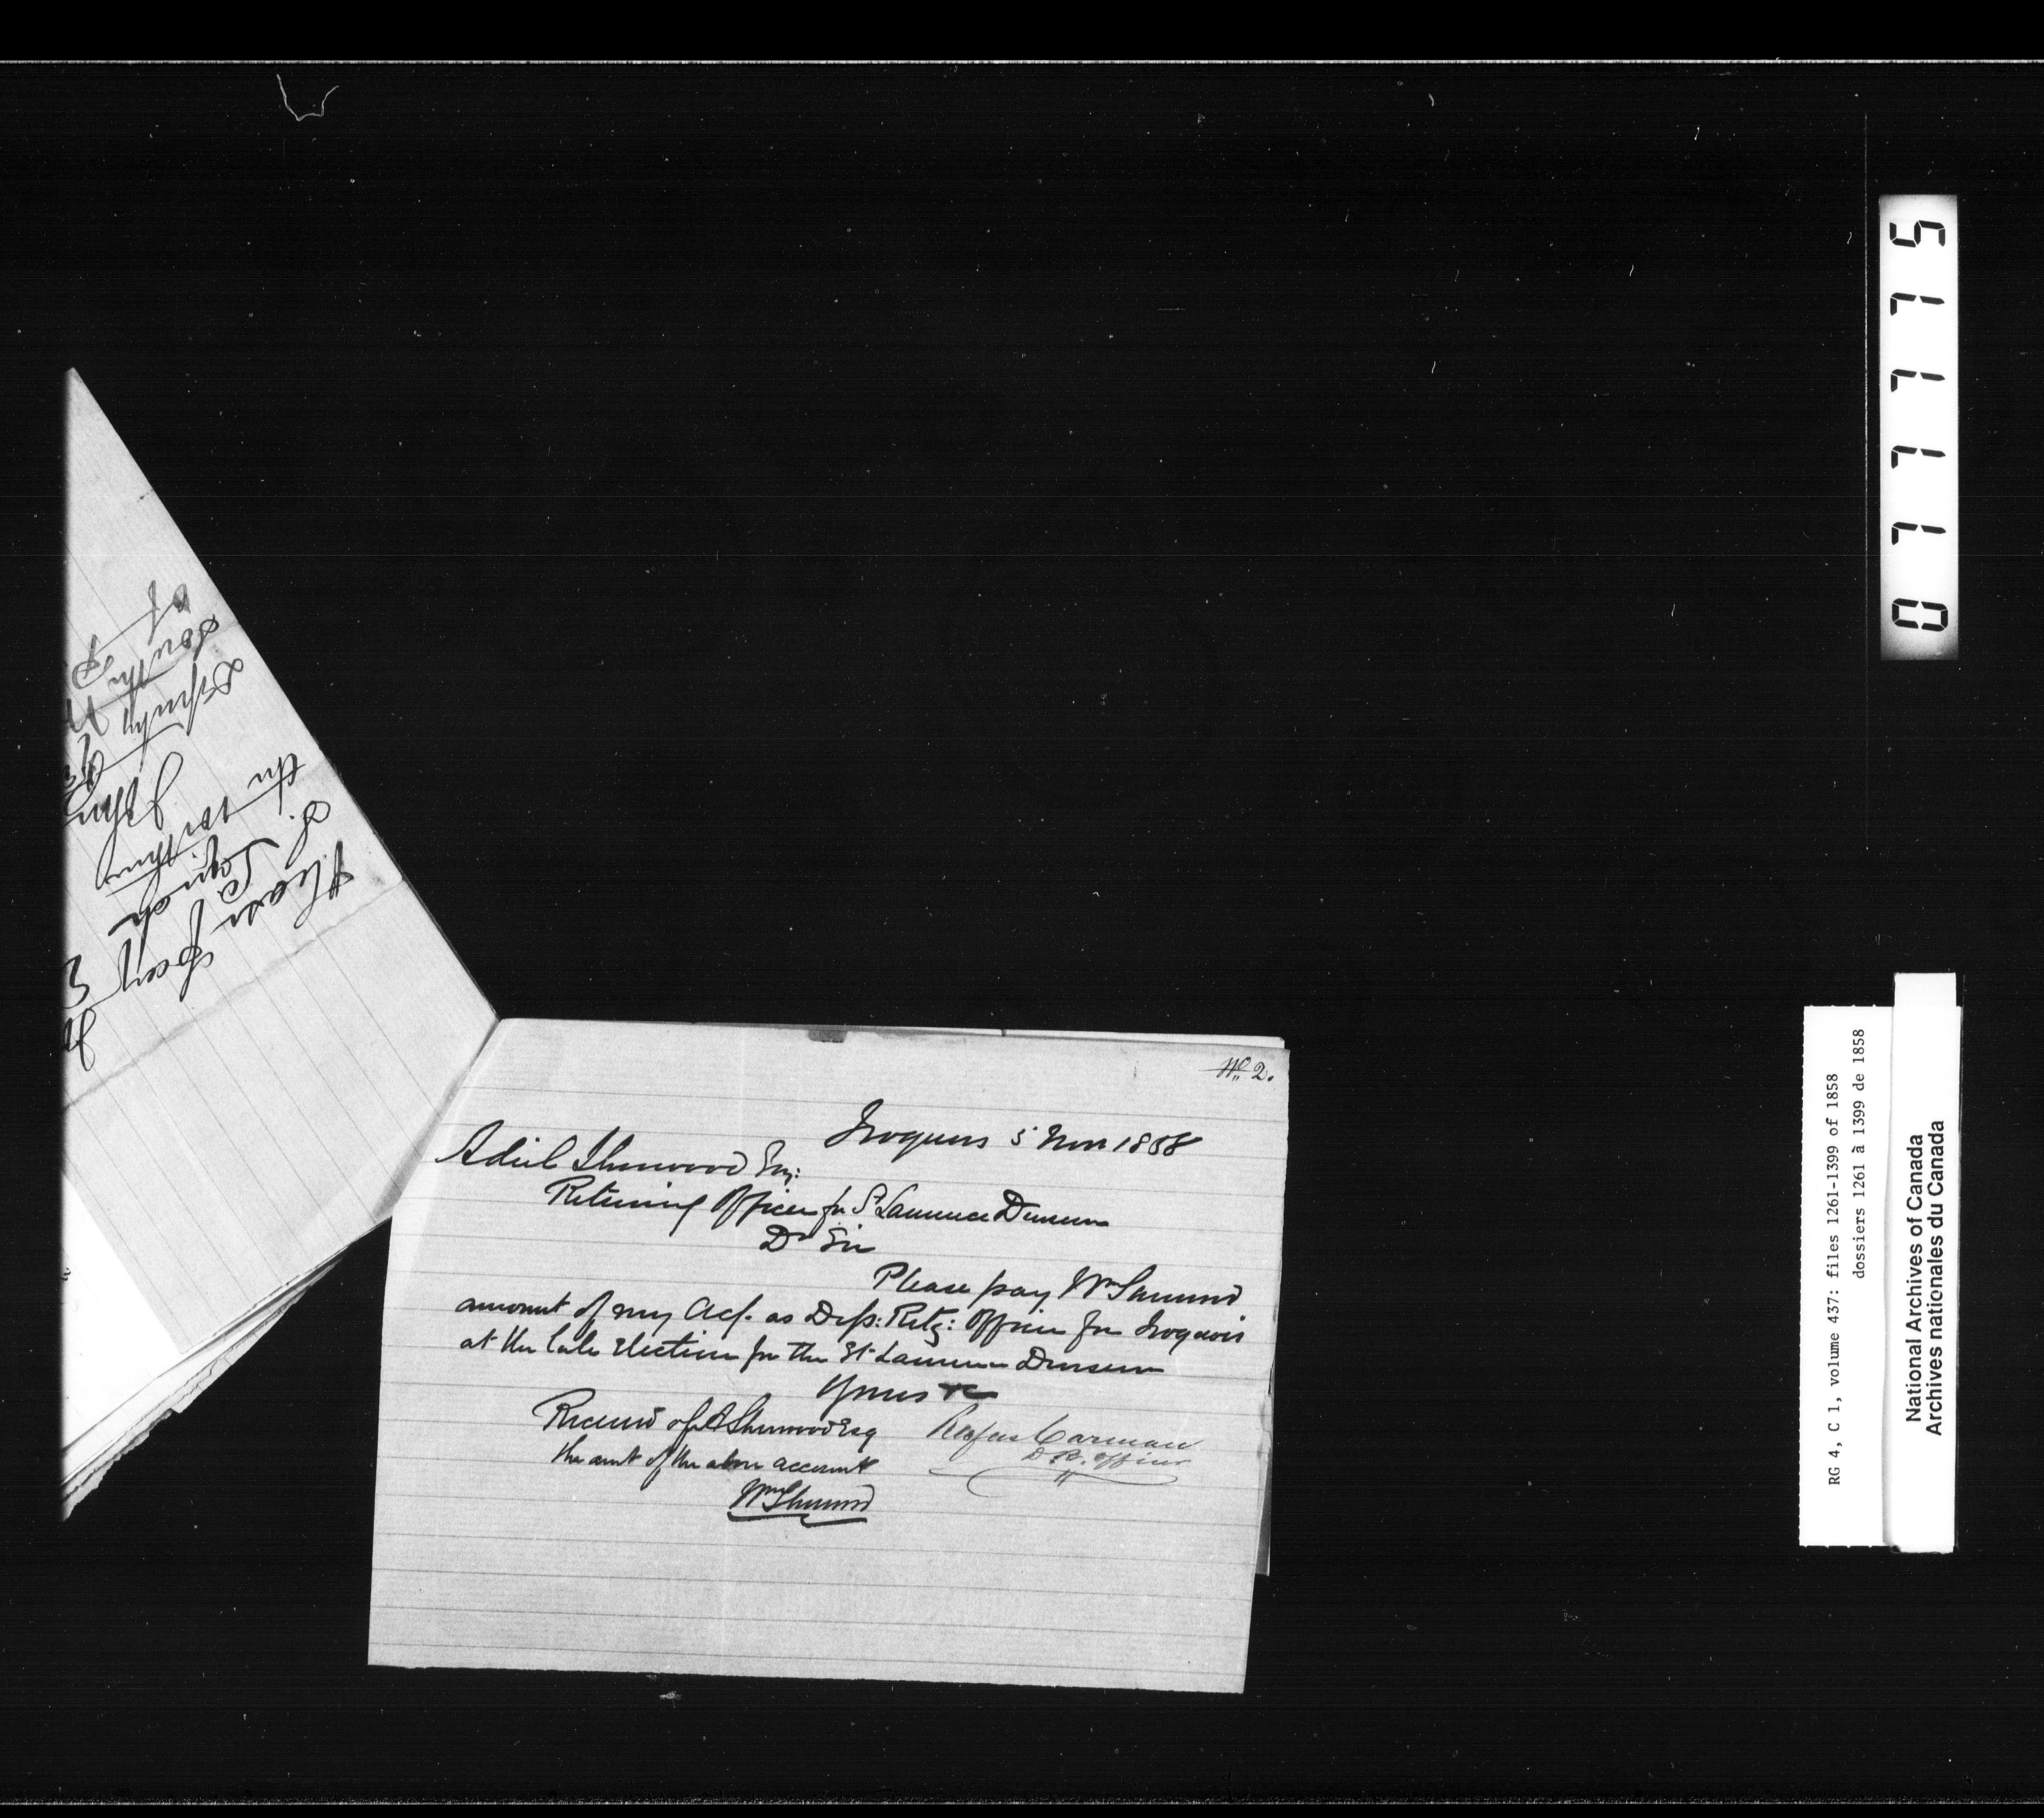 No. 2.
Iroquois 5 Nov 1858
Adiel Sherwood Esq:
Returning Officer for St Lawrence Division
Dr Sir
Please pay Wm Sherwood
amount of my Act. as Dep: Retg: Officer for Iroquois
at the late Election for the St Lawrence Division
Yours &c
Rufus Carman
D. R. Officer
Received of A Sherwood Esq
the amt of the above account
Wm Sherwood
Please pay
the within
John
Deputy
South
of
077775
RG 4, C 1, volume 437: files 1261-1399 of 1858
dossiers 1261 à 1399 de 1858
National Archives of Canada
Archives nationales du Canada